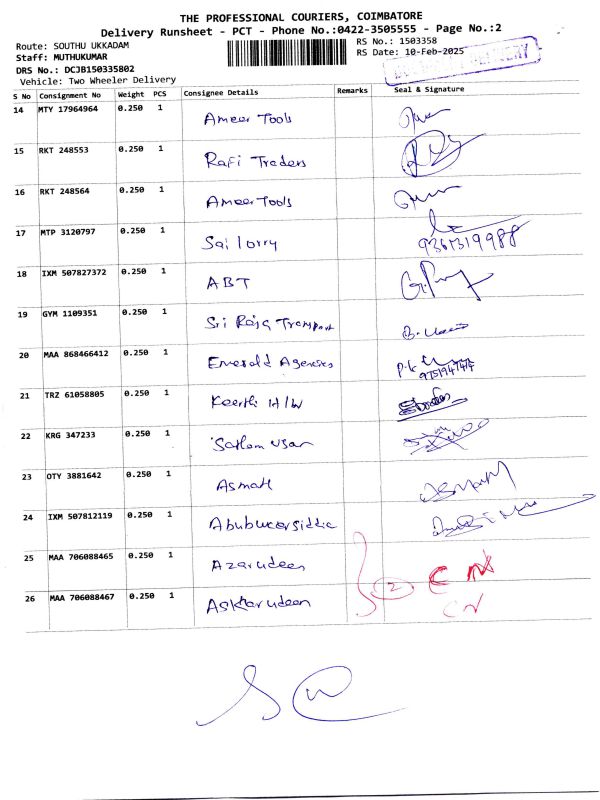 THE PROFESSIONAL COURIERS, COIMBATORE
Delivery Runsheet - PCT - Phone No.:0422-3505555 - Page No.:2
Route: SOUTHU UKKADAM
RS No.: 1503358
Staff: MUTHUKUMAR
RS Date: 10-Feb-2025
DRS No.: DCJB150335802
DELIVERY
Vehicle: Two Wheeler Delivery
S No Consignment No Weight PCS Consignee Details Remarks Seal & Signature
14 MTY 17964964 0.250 1 Ameer Tools
15 RKT 248553 0.250 1 Rafi Traders
16 RKT 248564 0.250 1 Ameer Tools
17 MTP 3120797 0.250 1 Sai lorry 9361319988
18 IXM 507827372 0.250 1 ABT
19 GYM 1109351 0.250 1 Sri Raja Transport
20 MAA 868466412 0.250 1 Emerald Agencies
21 TRZ 61058805 0.250 1 Keerthi H/W
22 KRG 347233 0.250 1
23 OTY 3881642 0.250 1
24 IXM 507812119 0.250 1 Abubucarsiddic
25 MAA 706088465 0.250 1 Azarudeen
26 MAA 706088467 0.250 1 2